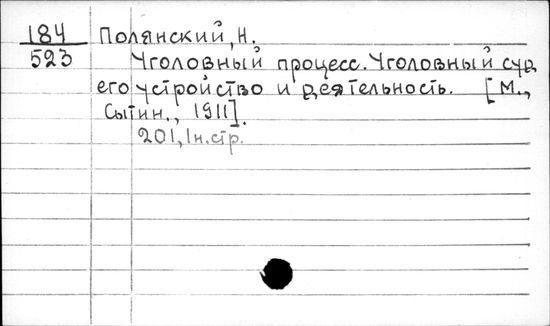 184
523
Полянский, Н.
Уголовный процесс. Уголовный суд
его устройство и деятельность. [М.,
Сытин., 1911].
201, 1н.стр.